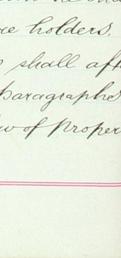 holders.
shall aff
paragraphs
w of proper